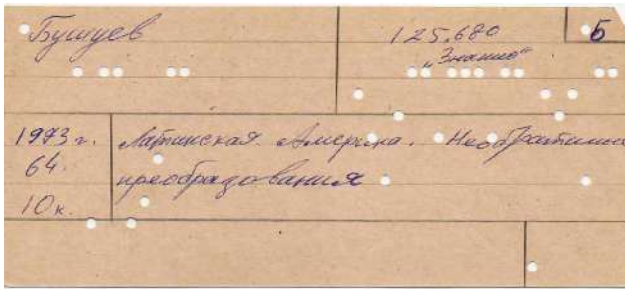 Бушуев 125.680 Б
„Знание“
1973 г. Латинская Америка. Необратимые
64. преобразования
10 к.